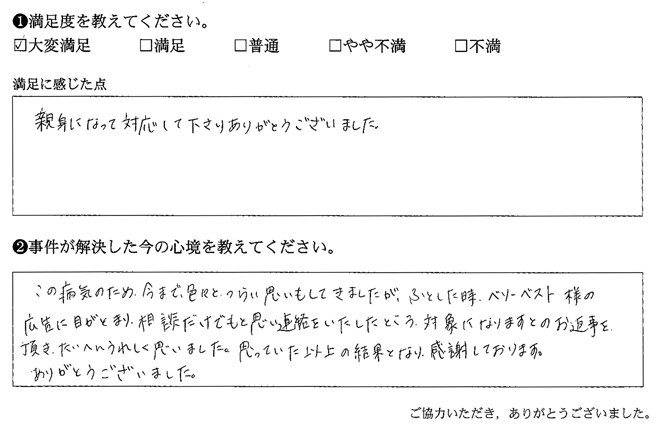 ❶満足度を教えてください。
☑大変満足 □満足 □普通 □やや不満 □不満
満足に感じた点
親身になって対応して下さりありがとうございました。
❷事件が解決した今の心境を教えてください。
この病気のため、今まで、色々と、つらい思いもしてきましたが、ふとした時、ベリーベスト 様の
広告に目がとまり、相談だけでもと思い連絡をいたしたところ、対象になりますとのお返事を
頂き、たいへんうれしく思いました。思っていた以上の結果となり、感謝しております。
ありがとうございました。
ご協力いただき，ありがとうございました。